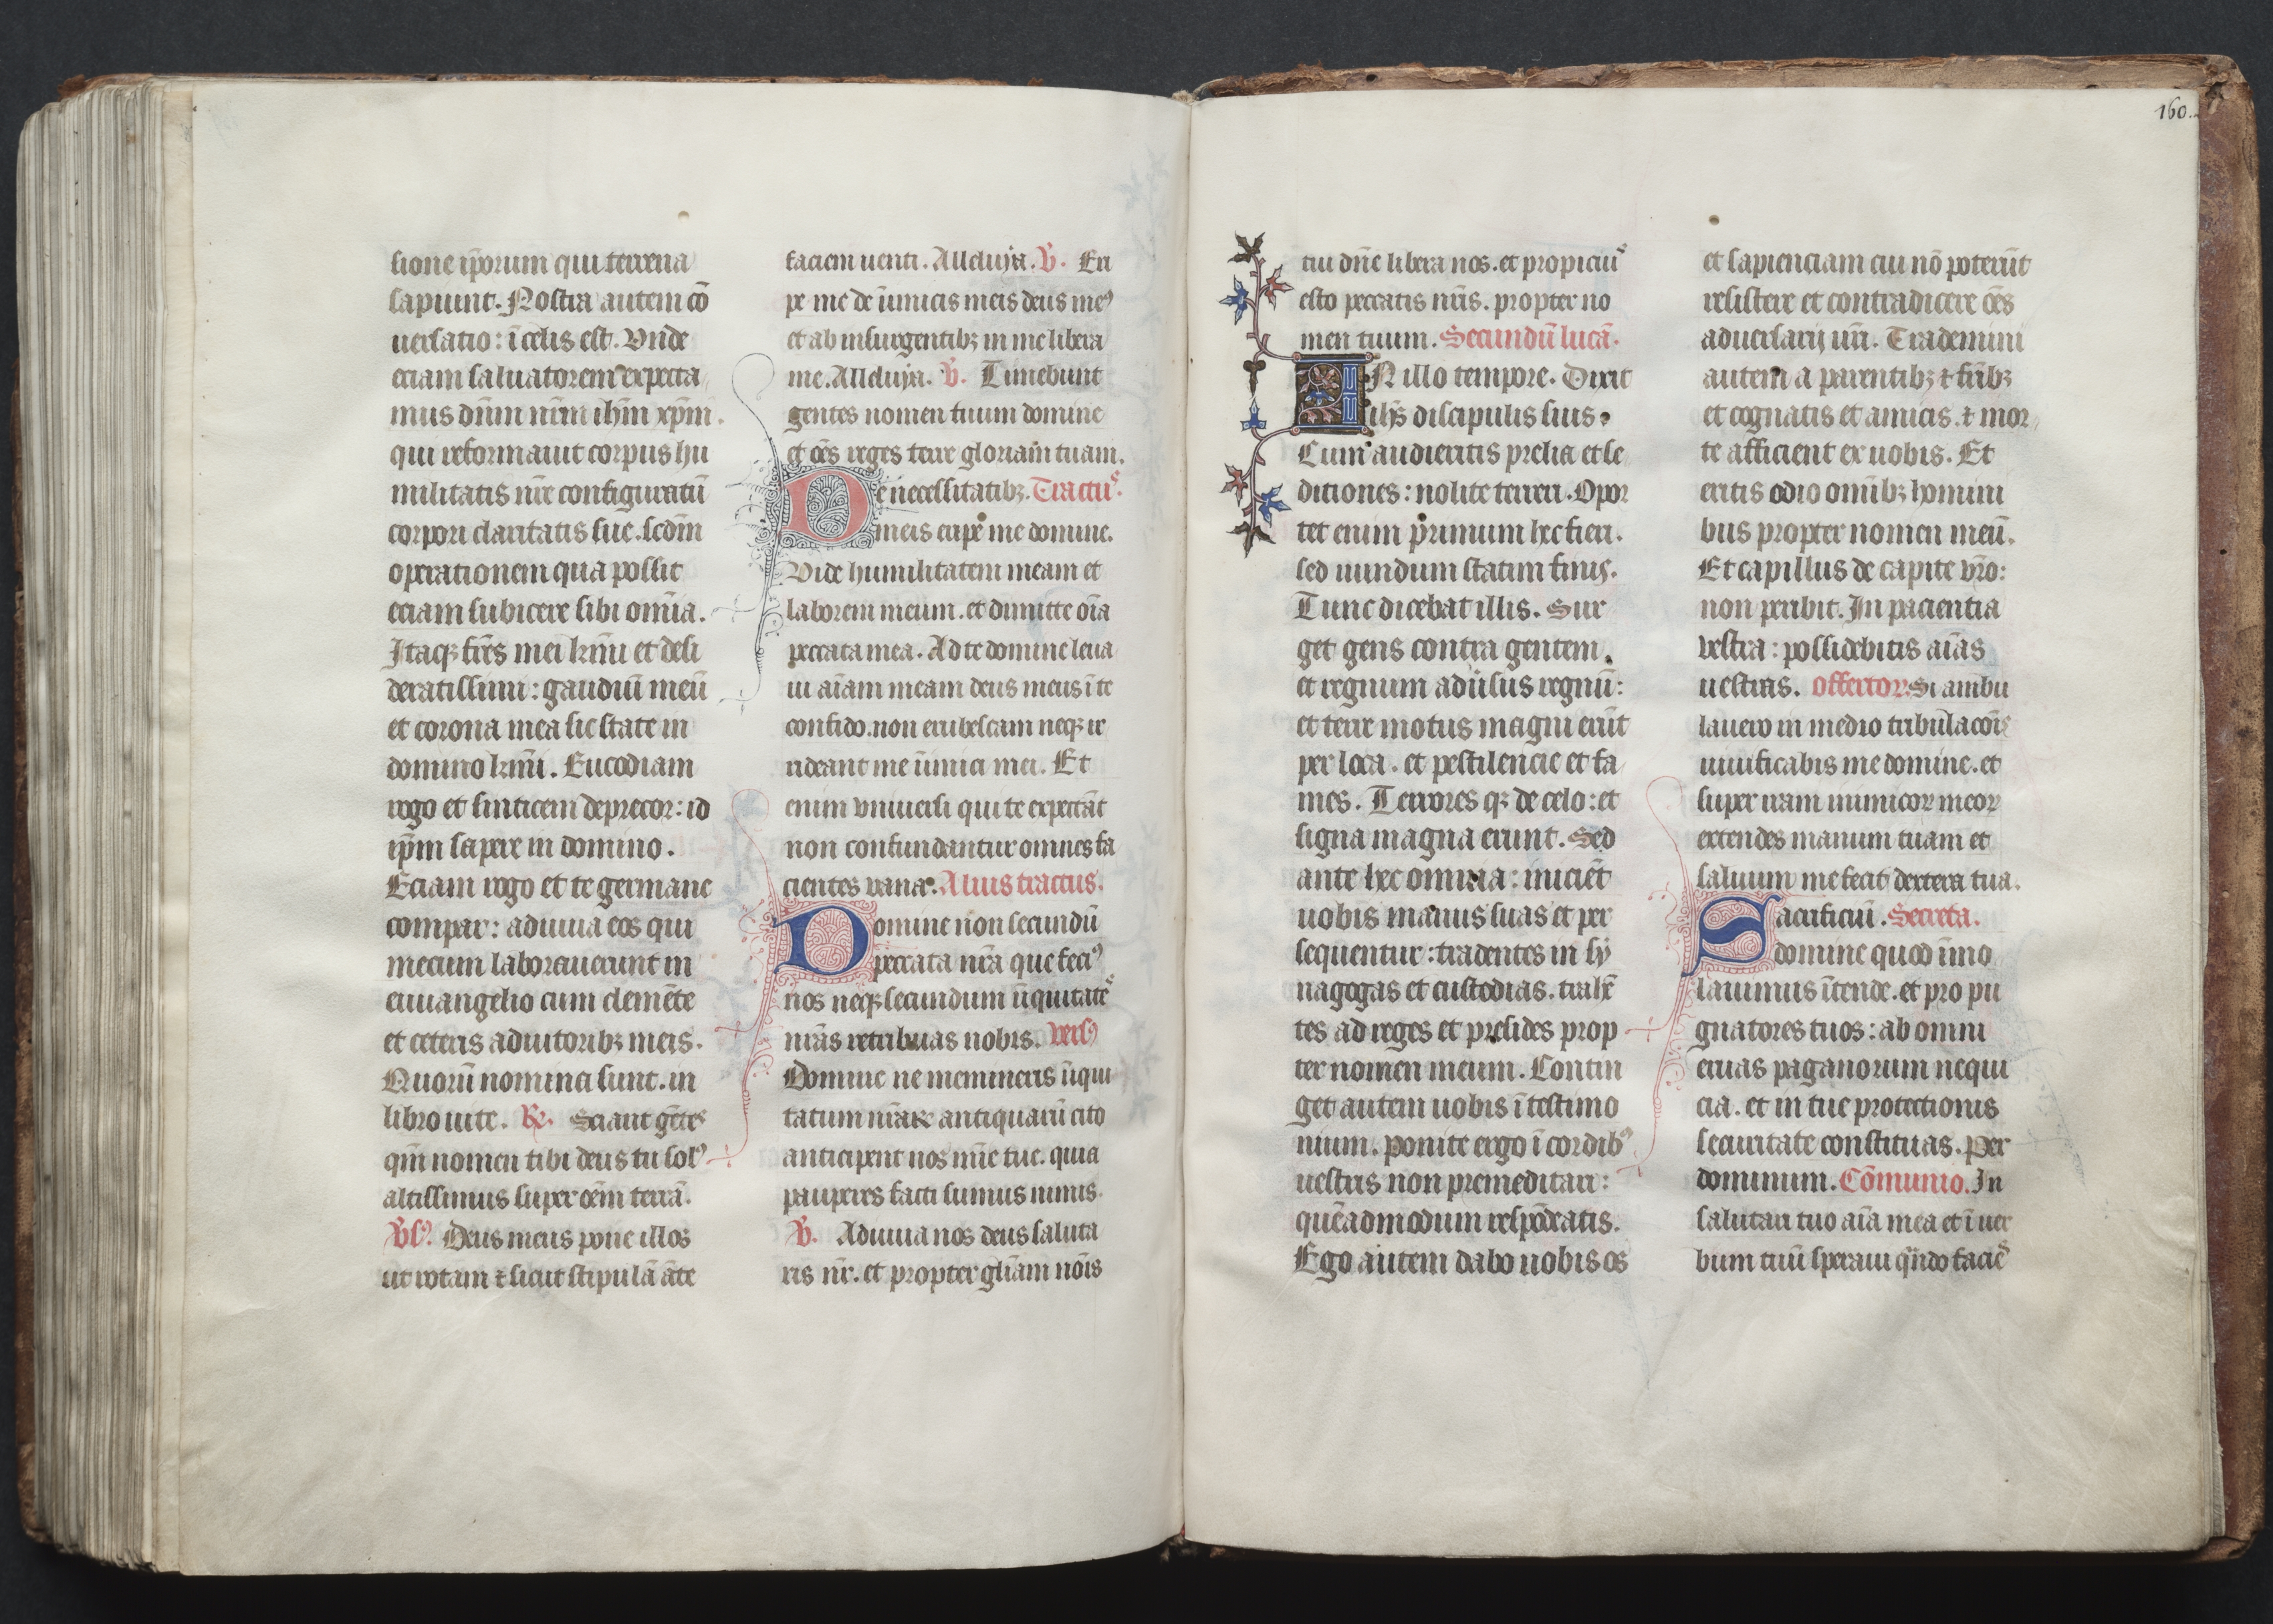 sione ip̄orum qui terrena
sapiunt. Nostra autem cō
uersatio: ī celis est. Vnde
eciam saluatorem expecta
mus dn̄m nr̄m ih̄m xp̄m.
qui reformauit corpus hu
militatis nr̄e configuratū
corpori claritatis sue. scdm̄
operationem qua possit
eciam subicere sibi omīa.
Itaqꝫ fr̄es mei kr̄mi et desi
deratissimi: gaudiū meū
et corona mea sic state in
domino kr̄mi. Eucodiam
rogo et sinticem deprecor: id
ip̄m sapere in domino.
Eciam rogo et te germane
compar: adiuua eos qui
mecum laborauerunt in
euuangelio cum clemēte
et ceteris adiutoribꝫ meis.
Quorū nomina sunt. in
libro uite. ℟. Sciant gētes
qm̄ nomen tibi deus tu solꝰ
altissimus super oēm terrā.
Vsꝰ. Deus meus pone illos
ut rotam ⁊ sicut stipulā āte
faciem uenti. Alleluya. V̄. Eri
pe me de īimicis meis deus meꝰ
et ab insurgentibꝫ in me libera
me. Alleluya. V̄. Timebunt
gentes nomen tuum domine
et oēs reges terre gloriam tuam.
De necessitatibꝫ. Tractus.
meis eripe me domine.
Vide humilitatem meam et
laborem meum. et dimitte oīa
peccata mea. Ad te domine leua
ui aīam meam deus meus ī te
confido. non erubescam neqꝫ ir
rideant me īimici mei. Et
enim vniuersi qui te expectāt
non confundantur omnes fa
cientes vana. Alius tractus.
Domine non secundū
peccata nr̄a que feciꝰ
nos neqꝫ secundum īiquitates
nr̄as retribuas nobis. Versꝰ
Domine ne memineris īiqui
tatum nr̄aꝝ antiquarū cito
anticipent nos mīe tue. quia
pauperes facti sumus nimis.
V̄. Adiuua nos deus saluta
ris nr̄. et propter glīam nōis
160.
tui dn̄e libera nos. et propicius
esto peccatis nr̄is. propter no
men tuum. Secundū lucā.
IN illo tempore. Dixit
ih̄s discipulis suis.
Cum audieritis prelia et se
ditiones: nolite terreri. Opor
tet enim primum hec fieri.
sed nundum statim finis.
Tunc dicebat illis. Sur
get gens contra gentem.
et regnum aduīsus regnū:
et terre motus magni erūt
per loca. et pestilencie et fa
mes. Terrores qꝫ de celo: et
signa magna erunt. Sed
ante hec omnia: iniciēt
uobis manus suas et per
sequentur: tradentes in sy
nagogas et custodias. trahē
tes ad reges et presides prop
ter nomen meum. Contin
get autem uobis ī testimo
nium. ponite ergo ī cordibꝰ
uestris non premeditari:
quēadmodum respōdeatis.
Ego autem dabo uobis os
et sapienciam cui nō poterūt
resistere et contradicere oēs
aduersarij ur̄i. Trademini
autem a parentibꝫ ⁊ fr̄ibꝫ
et cognatis et amicis. ⁊ mor
te afficient ex uobis. Et
eritis odio omībꝫ homini
bus propter nomen meū.
Et capillus de capite vr̄o:
non peribit. In paciencia
vestra: possidebitis aīas
uestras. Offertoꝝ. Si ambu
lauero in medio tribulacōis
uiuificabis me domine. et
super iram inimicoꝝ meoꝝ
extendes manum tuam et
saluum me fecit dextera tua.
Sacrificiū. Secreta.
domine quod īmo
lauimus ītende. et pro pu
gnatores tuos: ab omni
eruas paganorum nequi
cia. et in tue protectionis
securitate constituas. Per
dominum. Cōmunio. In
salutari tuo aīa mea et ī uer
bum tuū speraui qn̄do facies